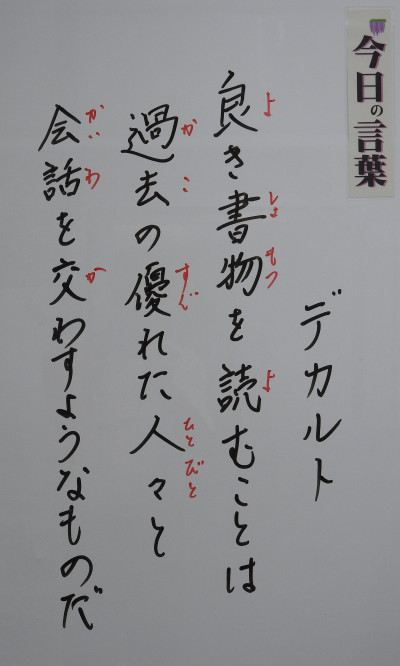 今日の言葉
デカルト
良き書物を読むことは
過去の優れた人々と
会話を交わすようなものだ
よ
しょもつ
よ
かこ
すぐ
ひとびと
かいわ
か